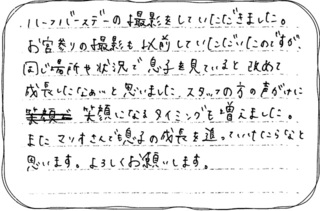 ハーフバースデーの撮影をしていただきました。
お宮参りの撮影も以前していただいたのですが、
同じ場所や状況で息子を見ていると改めて
成長したなぁ〜と思いました。スタッフの方の声がけに
笑顔で 笑顔になるタイミングも増えました。
またマリオさんでも息子の成長を追っていけたらなと
思います。よろしくお願いします。